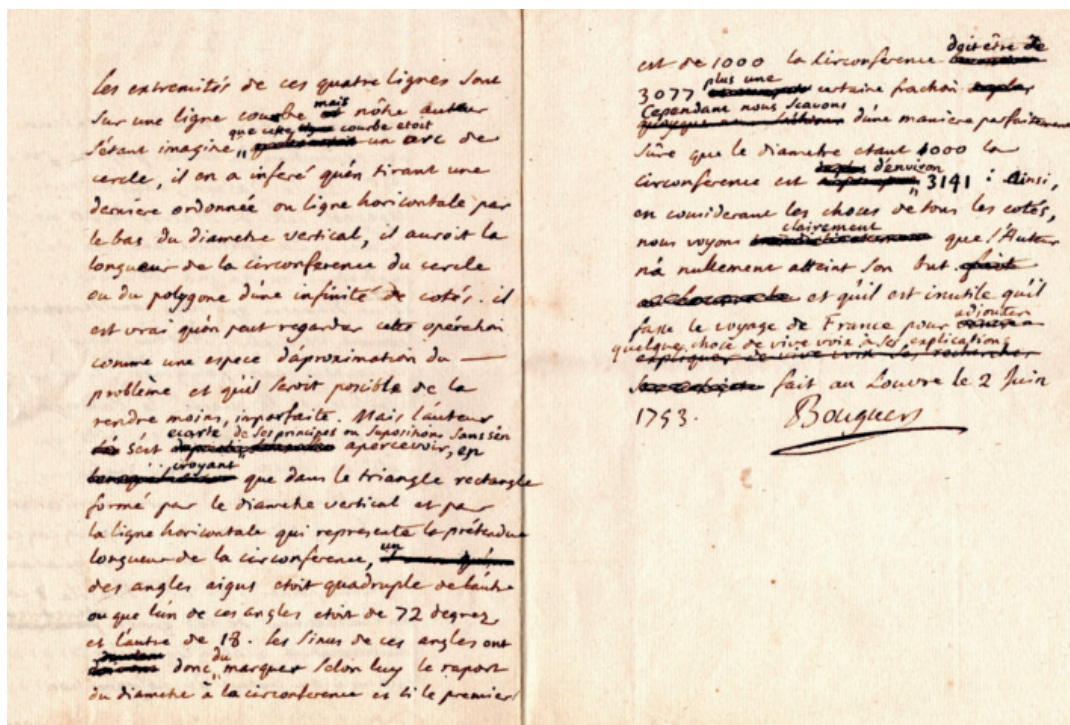 les extremités de ces quatre lignes sont
sur une ligne courbe mais nôtre auteur
s'étant imaginé que cette courbe etoit un arc de
cercle, il en a inferé qu'en tirant une
derniere ordonnée ou ligne horizontale par
le bas du diametre vertical, il auroit la
longueur de la circonference du cercle
ou du polygone d'une infinité de cotés. il
est vrai qu'on peut regarder cette opération
comme une espece d'aproximation du —
problème et qu'il seroit possible de la
rendre moins imparfaite. Mais l'auteur
s'est ecarté de ses principes ou supositions sans s'en
apercevoir, en
croyant que dans le triangle rectangle
formé par le diametre vertical et par
la ligne horizontale qui represente la prétendue
longueur de la circonference, un
des angles aigus etoit quadruple de l'autre
ou que l'un de ces angles etoit de 72 degrez
et l'autre de 18. les sinus de ces angles ont
donc du marquer selon luy le raport
du diametre à la circonference et si le premier
est de 1000 la circonference doit être de
3077 plus une certaine fraction
Cependant nous scavons d'une maniere parfaitement
sûre que le diametre etant 1000 la
circonference est d'environ 3141 : Ainsi,
en considerant les choses de tous les cotés,
nous voyons clairement que l'Auteur
n'a nullement atteint son but
et qu'il est inutile qu'il
fasse le voyage de France pour adjouter
quelque chose de vive voix à ses explications
fait au Louvre le 2 Juin
1753. Bouguer